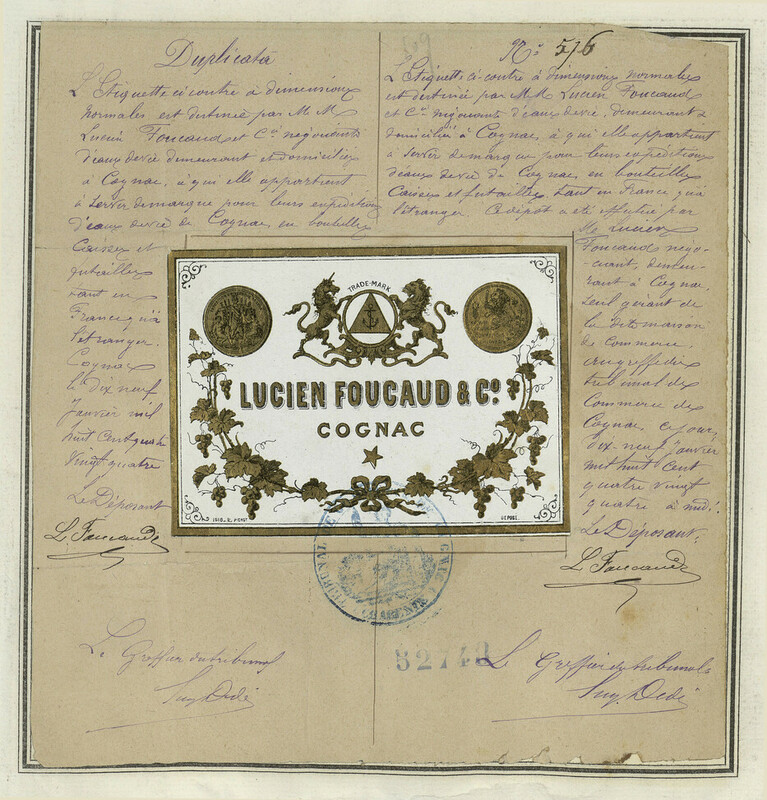 Duplicata
L'Etiquette ci contre à dimensions
normales est destinée par M M
Lucien Foucaud et Cie négociants
d'eaux de vie demeurant et domiciliés
à Cognac, à qui elle appartient
à servir de marque pour leurs expéditions
d'eaux de vie de Cognac en bouteilles
Caisses et
futailles
tant en
France qu'à
l'étranger.
Cognac
le dix neuf
Janvier mil
huit cent quatre
Vingt quatre
Le Déposant
L. Foucauld
Le Greffier du tribunal
No 576
L'Etiquette ci-contre à dimensions normales
est destinée par M.M. Lucien Foucaud
et Cie négociants d'eaux de vie, demeurant &
domiciliés à Cognac, à qui elle appartient
à servir de marque pour leurs expéditions
d'eaux de vie de Cognac en bouteilles
Caisses et futailles tant en France qu'à
l'étranger Ce dépôt a été effectué par
Mr Lucien
Foucaud négo-
ciant, demeu-
rant à Cognac,
Seul gérant de
la dite maison
de Commerce
au greffe du
tribunal de
Commerce de
Cognac, ce jour,
dix-neuf Janvier
mil huit cent
quatre vingt
quatre à midi.
Le Déposant.
L. Foucauld
Le Greffier du tribunal
TRADE-MARK
LUCIEN FOUCAUD & Co.
COGNAC
DÉPOSÉ
TRIBUNAL DE
CHARENTE
82748